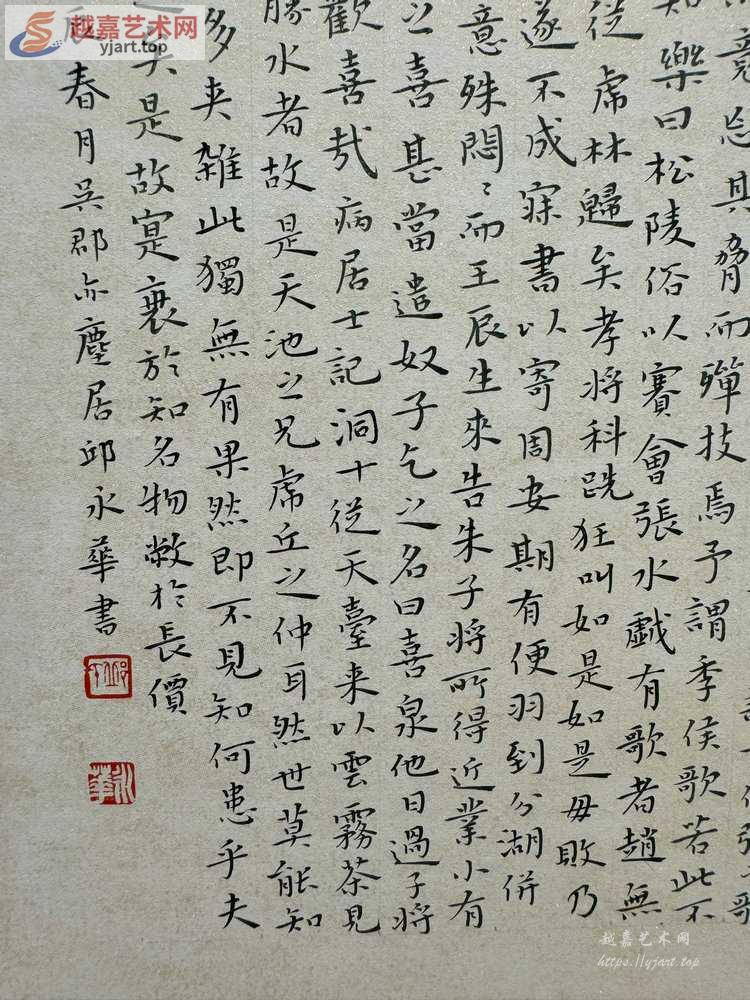 越嘉艺术网
yjart.top
歌
竟忘其脅而殫技焉予謂季侯歌若此不
知樂曰松陵俗以賽會張水戲有歌者趙無
從虎林歸矣孝將科跣狂叫如是如是毋敗乃
遂不成寐書以寄周安期有便羽到分湖併
意殊悶〻而王辰生來告朱子將所得近業小有
之喜甚當遣奴子乞之名曰喜泉他日過子將
歡喜哉病居士記洞十從天臺来以雲霧茶見
勝水者故是天池之兄虎丘之仲耳然世莫能知
多夾雜此獨無有果然即不見知何患乎夫
矣是故寔衷於知名物敝於長價
辰春月吳郡亦塵居邱永華書
永華
越嘉艺术网
https://yjart.top